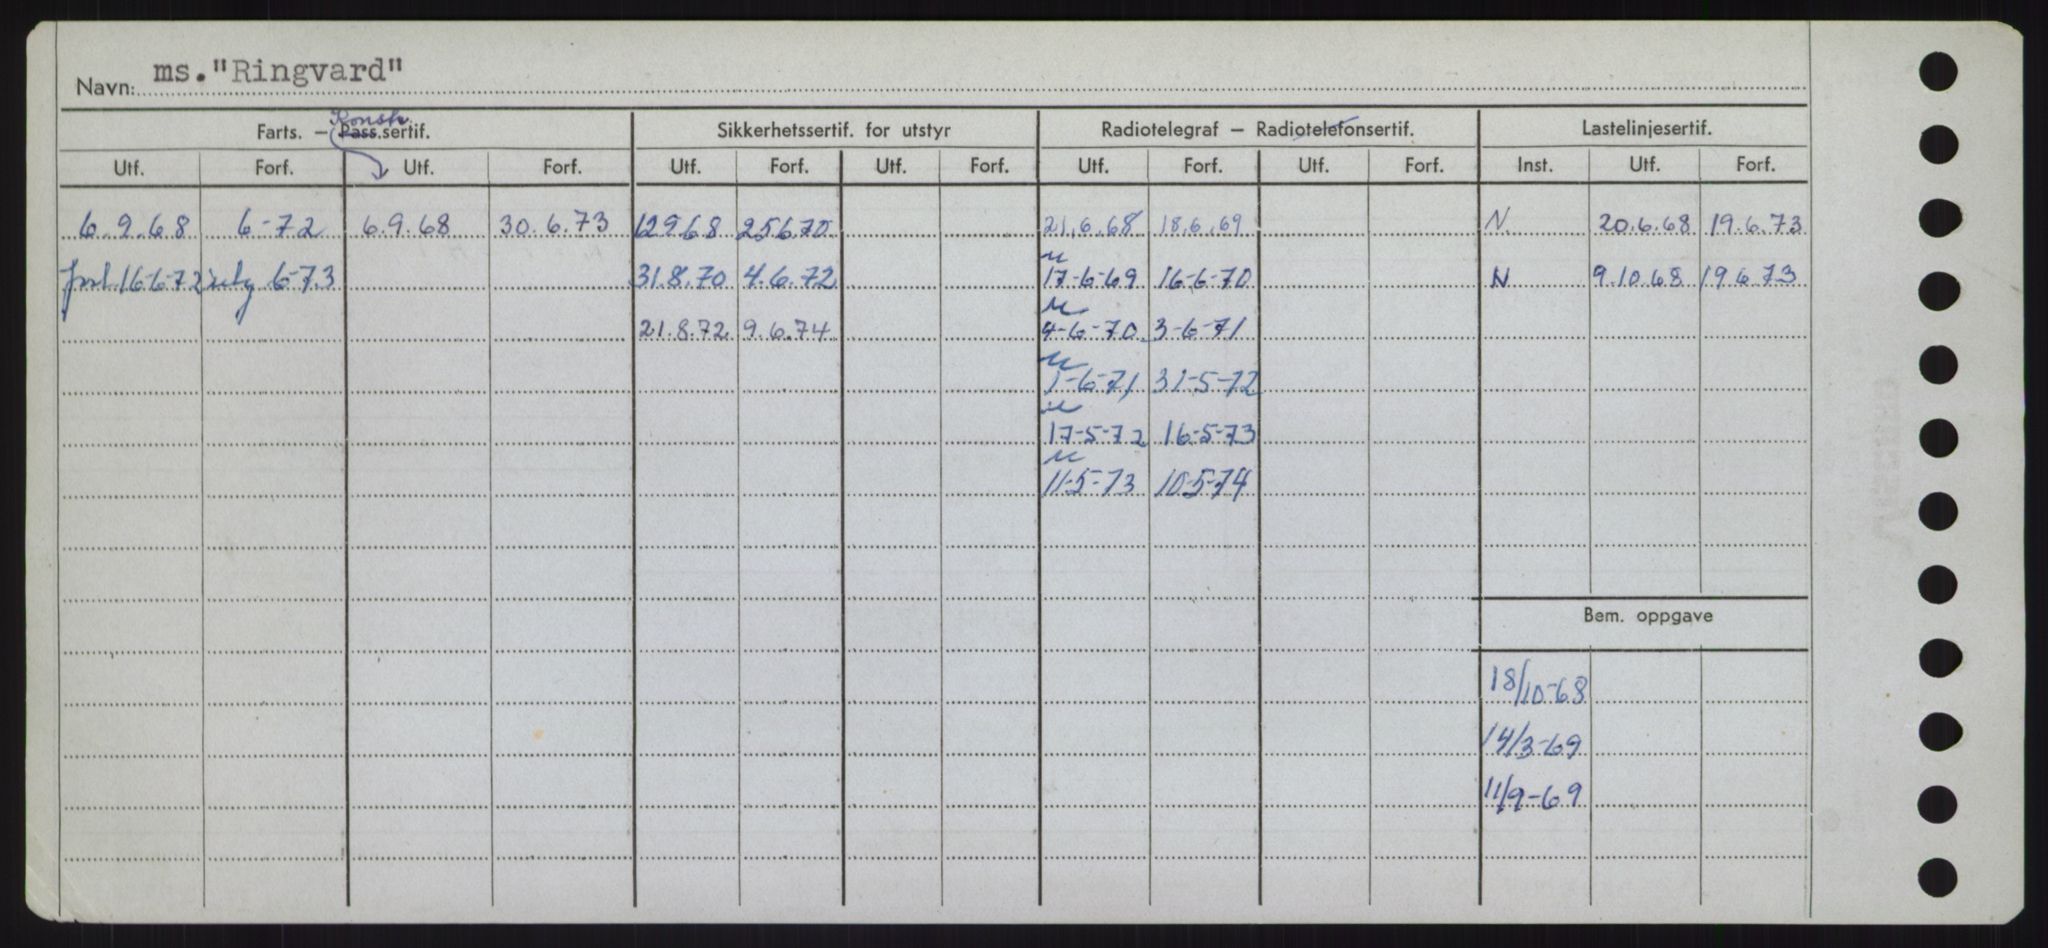 Navn: ms."Ringvard"
Konstr.
Farts. – Pass.sertif. Sikkerhetssertif. for utstyr Radiotelegraf – Radiotelefonsertif. Lastelinjesertif.
Utf. Forf. Utf. Forf. Utf. Forf. Utf. Forf. Utf. Forf. Utf. Forf. Inst. Utf. Forf.
6.9.68 6-72 6.9.68 30.6.73 12968 25670 21.6.68 18.6.69 N 20.6.68 19.6.73
16-6-72 6-73 31.8.70 4.6.72 17-6-69 16-6-70 N 9.10.68 19673
21.8.72 9.6.74 4-6-70 3-6-71
1-6-71 31-5-72
17-5-72 16-5-73
11-5-73 10-5-74
Bem. oppgave
18/10-68
14/3-69
11/9-69